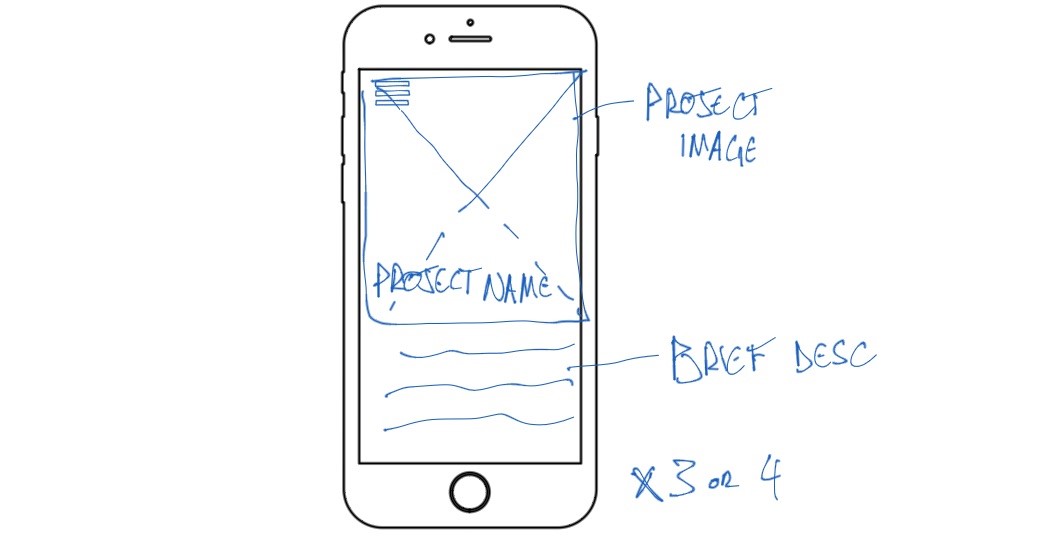 PROJECT
IMAGE
PROJECT NAME
BRIEF DESC
X 3 OR 4